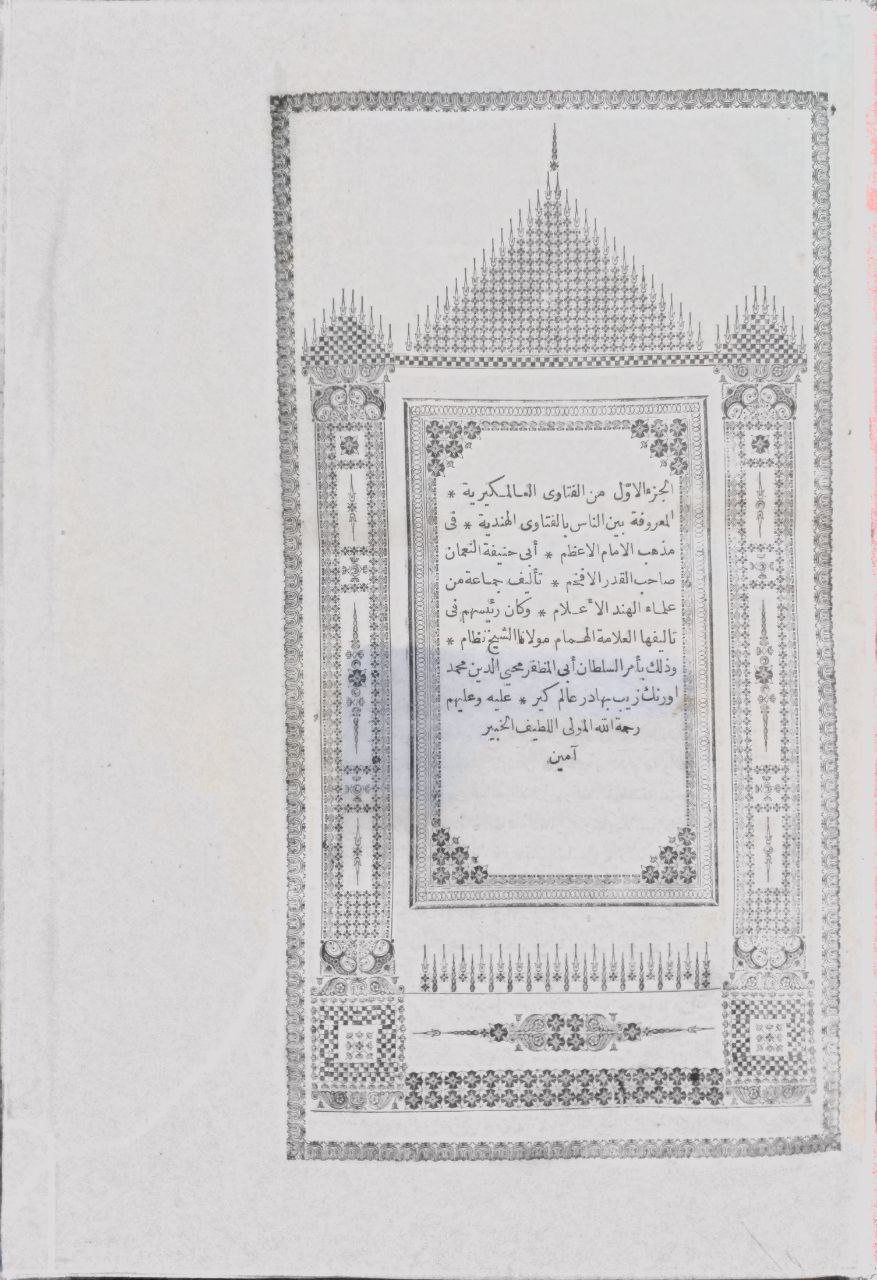 الجزء الاوّل من الفتاوى العالمـكيرية *
المعروفة بين الناس بالفتاوى الهندية * فى
مذهب الامام الاعظم * أبى حنيفة النعمان
صاحب القدر الافخم * تأليف جماعة من
علماء الهند الأعلام * وكان رئيسهم فى
تاليفها العلامة الهمام مولانا الشيخ نظام *
وذلك بأمر السلطان أبى المظفر محيى الدين محمد
اورنك زيب بهادر عالم كير * عليه وعليهم
رحمة الله المولى اللطيف الخبير
آمين